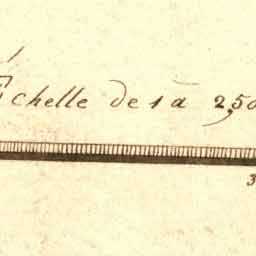 Échelle de 1 à 2,50
3